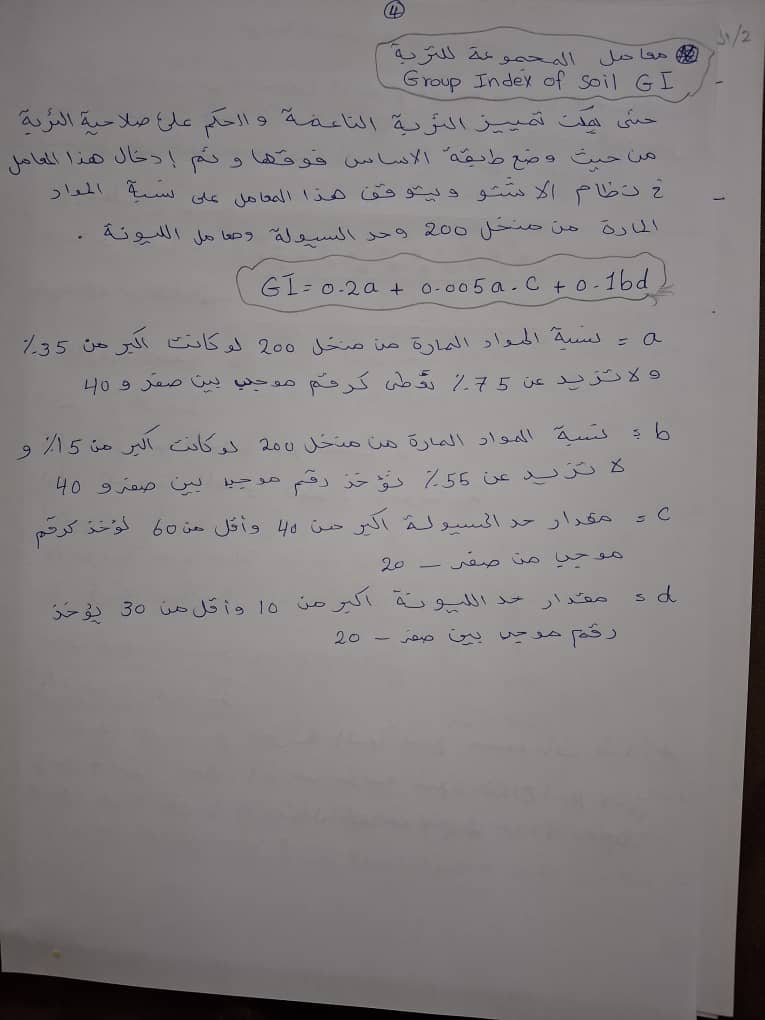 4
2/ال
معامل المجموعة للتربة
Group Index of Soil GI
حتى يمكن تمييز التربة الناعمة والحكم على صلاحية التربة
من حيث وضع طبقة الاساس فوقها و تم إدخال هذا المعامل
في نظام الاشتو ويتوقف هذا المعامل على نسبة المواد
المارة من منخل 200 وحد السيولة ومعامل الليونة .
GI = 0.2a + 0.005a.C + 0.1bd
a = نسبة المواد المارة من منخل 200 لو كانت اكبر من 35٪
ولا تزيد عن 75٪ تُعطى كرقم موجب بين صفر و 40
b = نسبة المواد المارة من منخل 200 لو كانت اكبر من 15٪ و
لا تزيد عن 55٪ تؤخذ رقم موجب بين صفر و 40
c = مقدار حد السيولة اكبر من 40 وأقل من 60 تؤخذ كرقم
موجب من صفر – 20
d = مقدار حد الليونة اكبر من 10 وأقل من 30 يؤخذ
رقم موجب بين صفر – 20